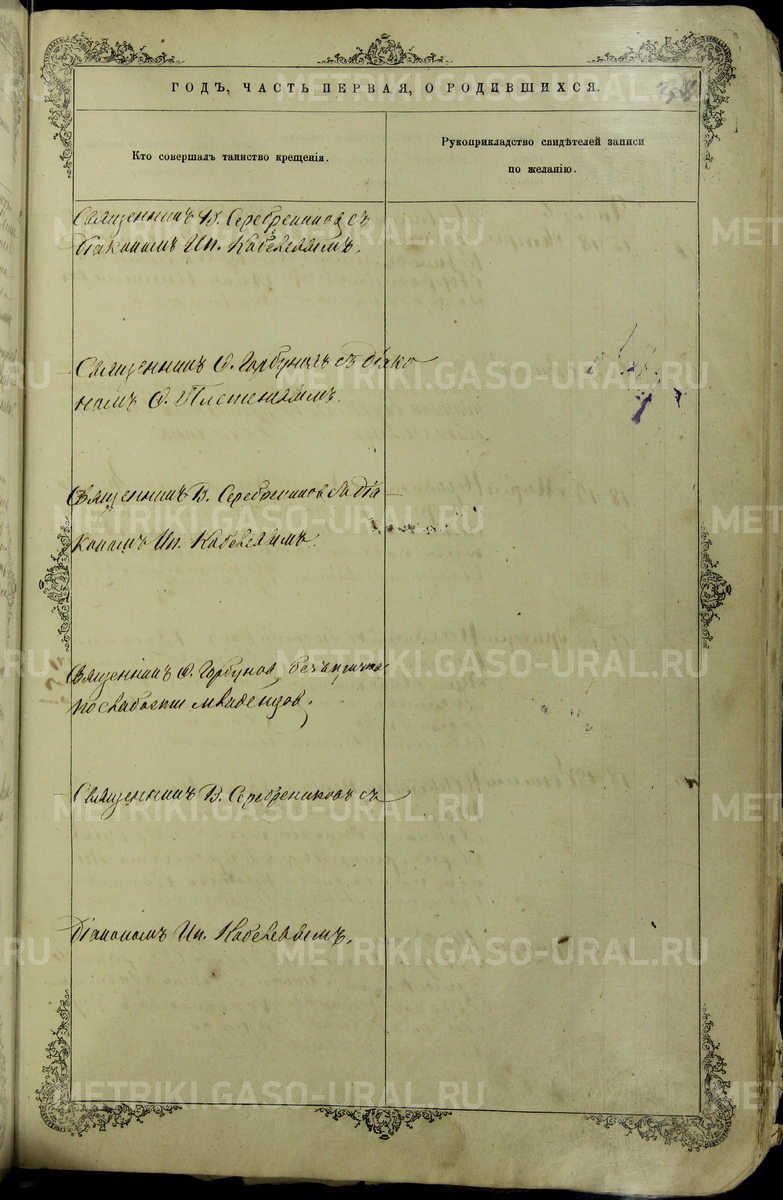 ГОДЪ, ЧАСТЬ ПЕРВАЯ, О РОДИВШИХСЯ.
Кто совершалъ таинство крещенія.
Рукоприкладство свидѣтелей записи
по желанію.
Священникъ В. Серебрениковъ съ
діакономъ Ип.
Священникъ Ѳ. Горбуновъ съ діако
номъ Ѳ.
Священникъ В. Серебрениковъ съ діа
кономъ Ип.
Священникъ Ѳ. Горбуновъ, безъ причта
по слабости младенцов.
Священникъ В. Серебрениковъ съ
діакономъ Ип.
METRIKI.GASO-URAL.RU